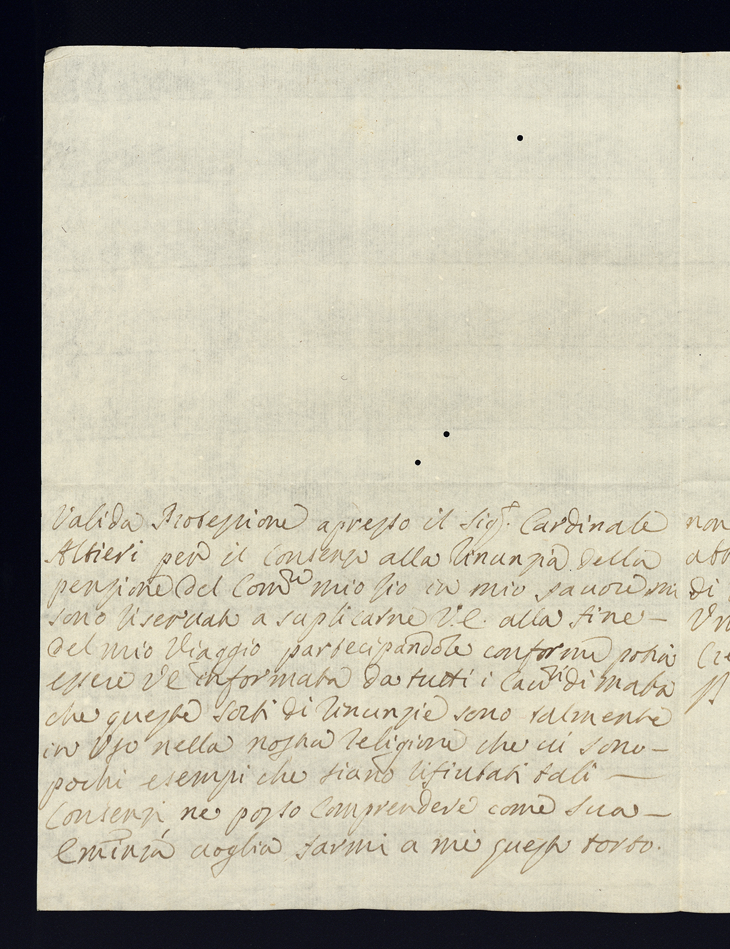 Valida Protezzione apresso il Sig.r Cardinale
Altieri per il Consenso alla rinunzia della
penzione del Com.re mio Zio in mio favore mi
sono riservato a suplicarne V.E. alla fine –
del mio Viaggio partecipandole conforme potrà
essere V.E. informata da tutti i Cav.ri di Malta
che queste sorti di rinunzie sono talmente
in Uso nella nostra religione che vi sono –
pochi esempi che siano rifiutati tali –
Consensi ne posso Comprendere come Sua –
Eminza voglia farmi a me questo torto.
non
di